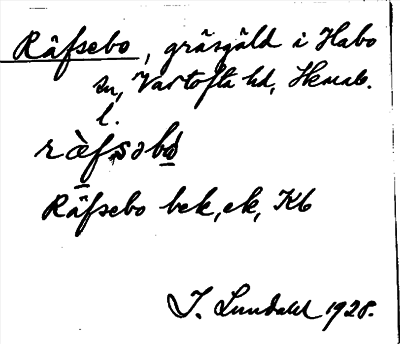 Räfsebo, gräsgäld i Habo
sn, Vartofta hd,
l.
ràf̣səbo
Räfsebo bek, ek, Kb
I. Lundahl 1928.